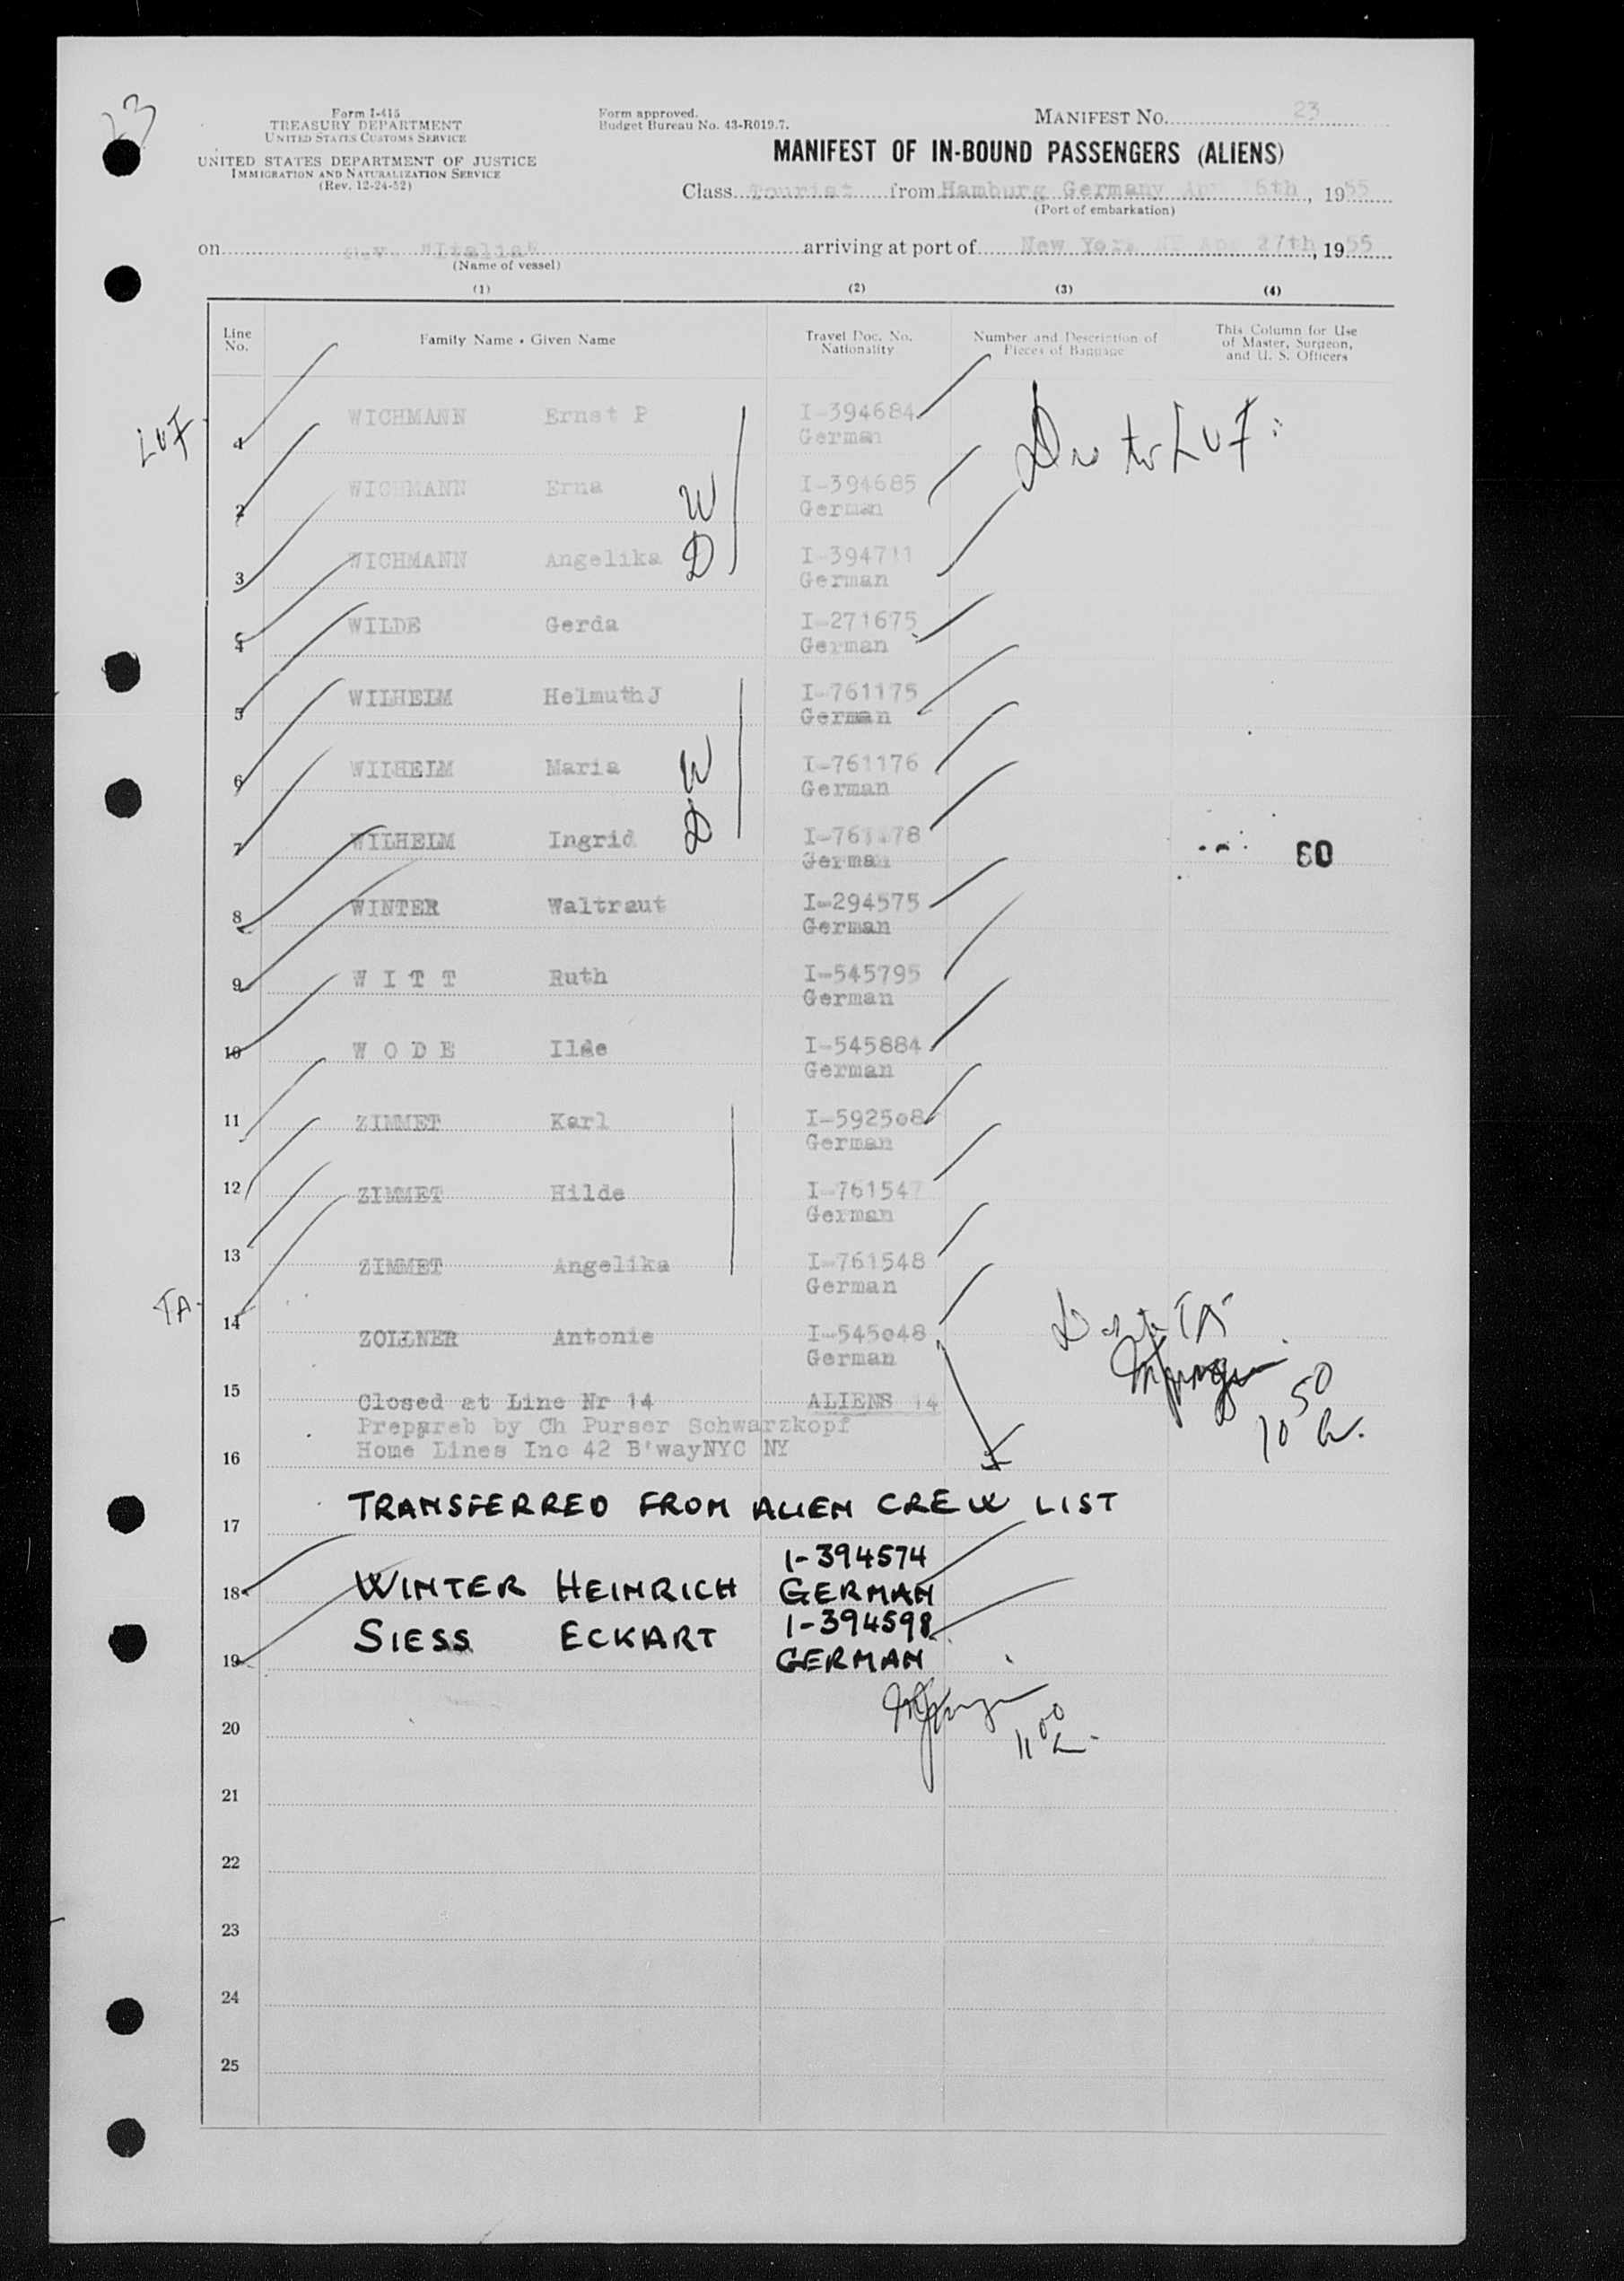 23
Form I-415
TREASURY DEPARTMENT
UNITED STATES CUSTOMS SERVICE
UNITED STATES DEPARTMENT OF JUSTICE
IMMIGRATION AND NATURALIZATION SERVICE
(Rev. 12-24-52)
Form approved.
Budget Bureau No. 43-R019.7.
MANIFEST NO. 23
MANIFEST OF IN-BOUND PASSENGERS (ALIENS)
Class Tourist from Hamburg Germany Apr 16th, 1955
(Port of embarkation)
on "Italia" arriving at port of New York NY Apr 27th, 1955
(Name of vessel)
(1) (2) (3) (4)
Line No. Family Name • Given Name Travel Doc. No. Nationality Number and Description of Pieces of Baggage This Column for Use of Master, Surgeon, and U. S. Officers
LUF 1 WICHMANN Ernst P I-394684 German LUF
2 WICHMANN Erna W I-394685 German
3 WICHMANN Angelika D I-394711 German
4 WILDE Gerda I-271675 German
5 WILHELM Helmuth J I-761175 German
6 WILHELM Maria W I-761176 German
7 WILHELM Ingrid D I-761178 German 60
8 WINTER Waltraut I-294575 German
9 W I T T Ruth I-545795 German
10 W O D E Ilde I-545884 German
11 ZIMMET Karl I-592508 German
12 ZIMMET Hilde I-761547 German
13 ZIMMET Angelika I-761548 German
TA 14 ZOLLNER Antonie I-545048 German TA
15 Closed at Line Nr 14 ALIENS 14
Prepareb by Ch Purser Schwarzkopf
16 Home Lines Inc 42 B'wayNYC NY
10 50
17 TRANSFERRED FROM ALIEN CREW LIST
18 WINTER HEINRICH I-394574 GERMAN
19 SIESS ECKART I-394598 GERMAN
20 11 00
21
22
23
24
25